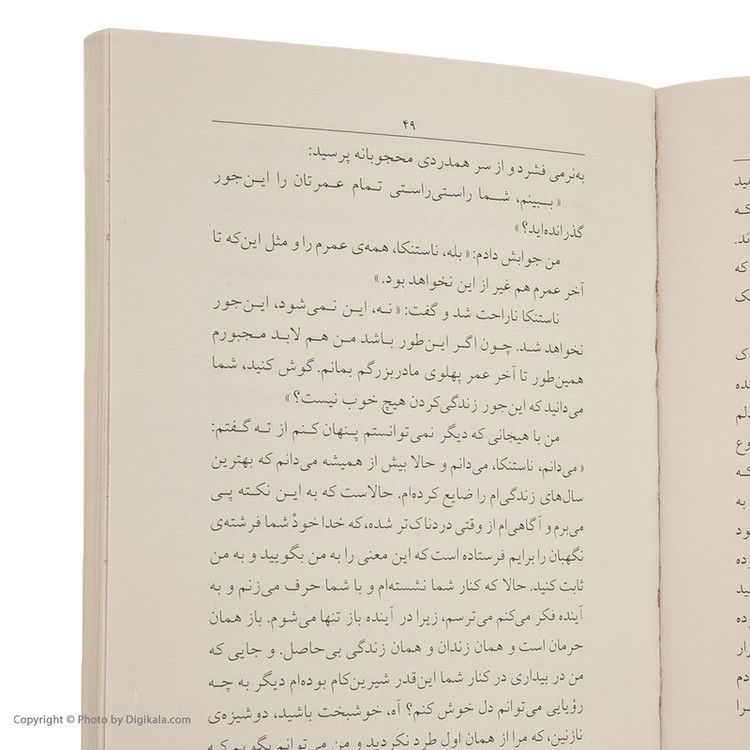 ۴۹
به‌نرمی فشرد و از سر همدردی محجوبانه پرسید:
«ببینم، شما راستی‌راستی تمام عمرتان را این‌جور
گذرانده‌اید؟»
من جوابش دادم: «بله، ناستنکا، همه‌ی عمرم را و مثل این‌که تا
آخر عمرم هم غیر از این نخواهد بود.»
ناستنکا ناراحت شد و گفت: «نه، این نمی‌شود، این‌جور
نخواهد شد. چون اگر این‌طور باشد من هم لابد مجبورم
همین‌طور تا آخر عمر پهلوی مادربزرگم بمانم. گوش کنید، شما
می‌دانید که این‌جور زندگی‌کردن هیچ خوب نیست؟»
من با هیجانی که دیگر نمی‌توانستم پنهان کنم از ته گفتم:
«می‌دانم، ناستنکا، می‌دانم و حالا بیش از همیشه می‌دانم که بهترین
سال‌های زندگی‌ام را ضایع کرده‌ام. حالاست که به این نکته پی
می‌برم و آگاهی‌ام از وقتی دردناک‌تر شده، که خدا خودْ شما فرشته‌ی
نگهبان را برایم فرستاده است که این معنی را به من بگویید و به من
ثابت کنید. حالا که کنار شما نشسته‌ام و با شما حرف می‌زنم و به
آینده فکر می‌کنم می‌ترسم، زیرا در آینده باز تنها می‌شوم. باز همان
حرمان است و همان زندان و همان زندگی بی‌حاصل. و جایی که
من در بیداری در کنار شما این‌قدر شیرین‌کام بوده‌ام دیگر به چه
رؤیایی می‌توانم دل خوش کنم؟ آه، خوشبخت باشید، دوشیزه‌ی
نازنین، که مرا از همان اول طرد نکردید و من می‌توانم بگویم که
Copyright © Photo by Digikala.com